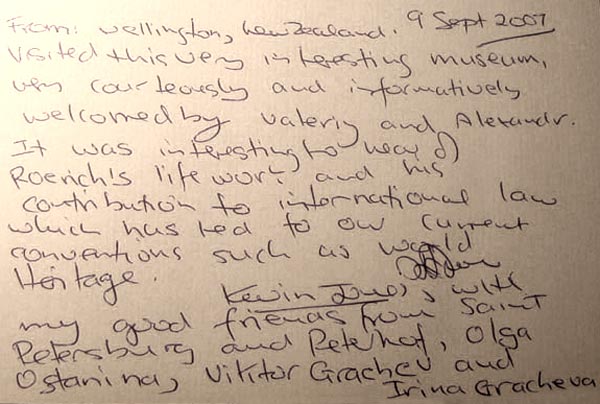 From: Wellington, New Zealand. 9 Sept 2007
Visited this very interesting museum,
very courteously and informatively
welcomed by Valeriy and Alexandr.
It was interesting to hear of
Roerich's life work and his
contribution to international law
which has led to our current
conventions such as World
Heritage.
Kevin Jones, with
my good friends from Saint
Petersburg and Peterhof, Olga
Ostanina, Viktor Grachev and
Irina Gracheva